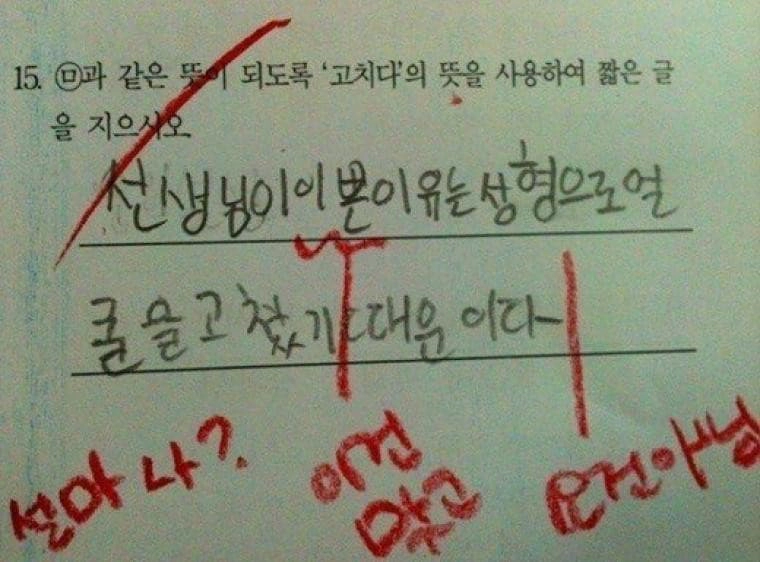 15. ㉤과 같은 뜻이 되도록 '고치다'의 뜻을 사용하여 짧은 글
을 지으시오
선생님이 이쁜이유는 성형으로 얼
굴을 고쳤기때문이다
설마 나?
이건
맞고
요건아님